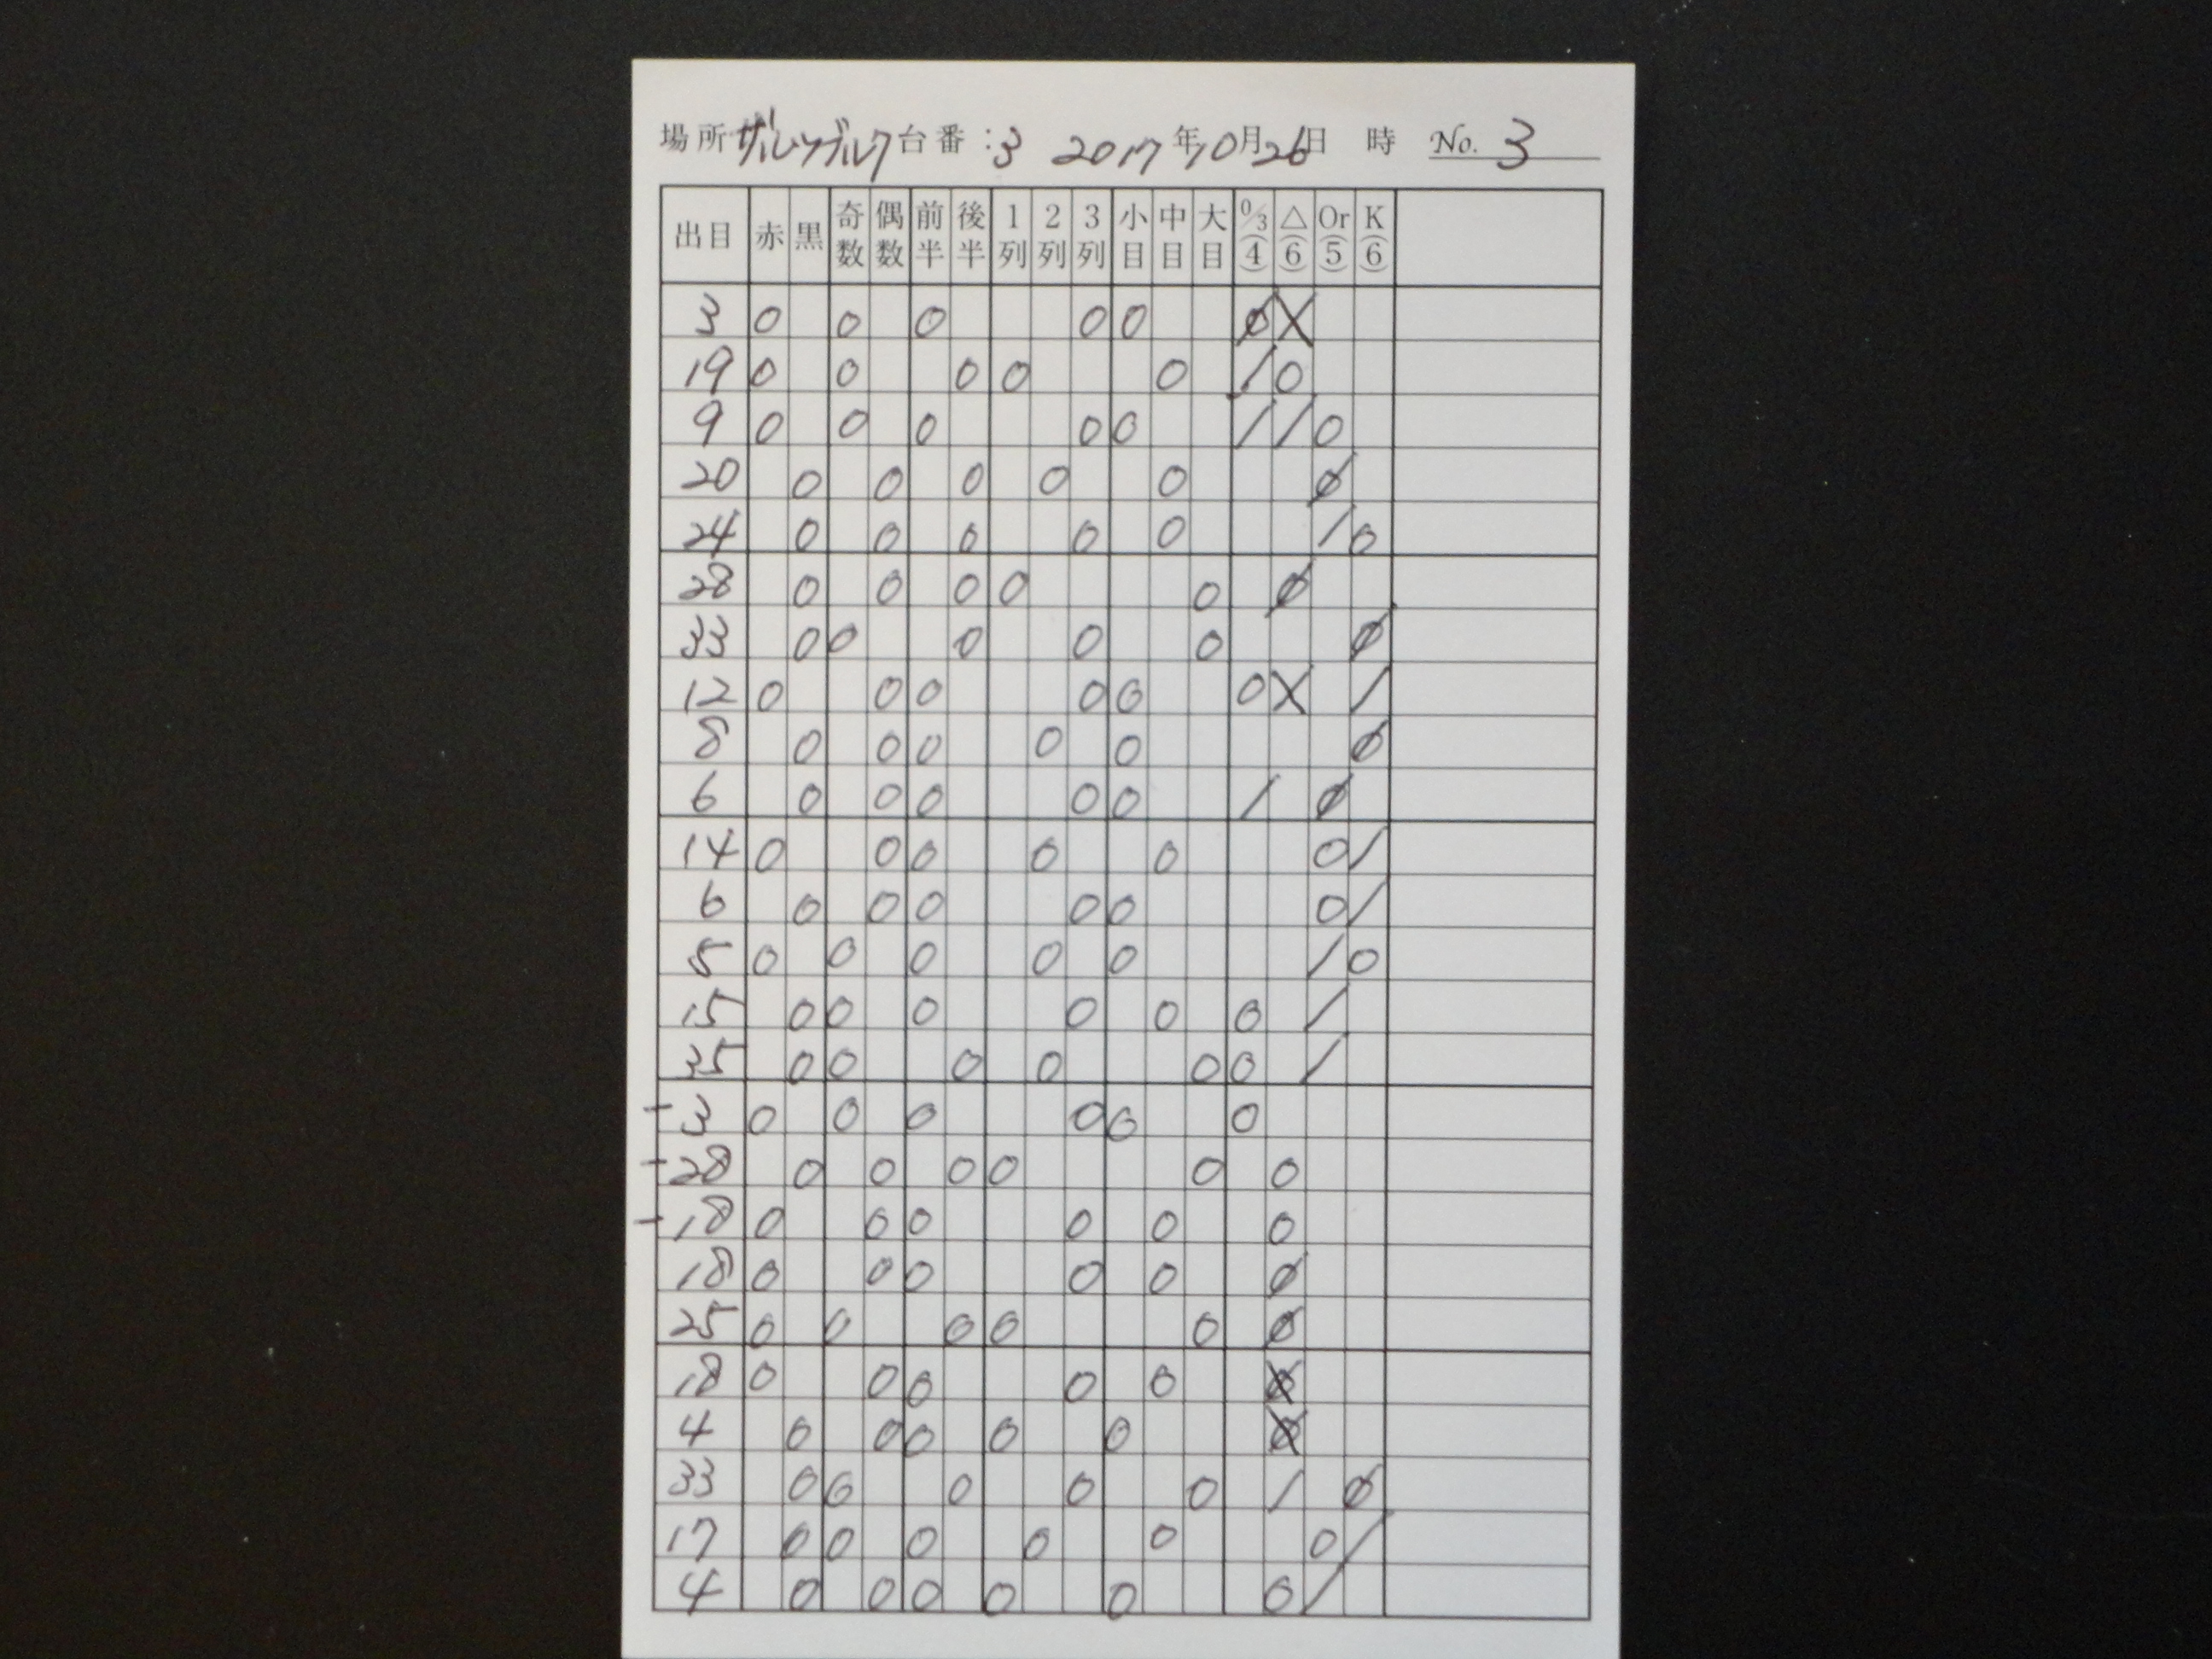 場所 ザルツブルク 台番:3 2017年10月26日 時 No. 3
出目 赤 黒 奇数 偶数 前半 後半 1列 2列 3列 小目 中目 大目 0/3(4) △(6) Or(5) K(6)
3 0 0 0 0 0 Ø X
19 0 0 0 0 0 / 0
9 0 0 0 0 0 / / 0
20 0 0 0 0 0 Ø
24 0 0 0 0 0 / 0
28 0 0 0 0 0 Ø
33 0 0 0 0 0 Ø
12 0 0 0 0 0 0 X /
8 0 0 0 0 0 Ø
6 0 0 0 0 0 / Ø
14 0 0 0 0 0 0 /
6 0 0 0 0 0 0 /
5 0 0 0 0 0 / 0
15 0 0 0 0 0 0 /
35 0 0 0 0 0 0 /
- 3 0 0 0 0 0 0
- 28 0 0 0 0 0 0
- 18 0 0 0 0 0 0
18 0 0 0 0 0 Ø
25 0 0 0 0 0 Ø
18 0 0 0 0 0 Ø
4 0 0 0 0 0 Ø
33 0 0 0 0 0 / Ø
17 0 0 0 0 0 0 /
4 0 0 0 0 0 0 /